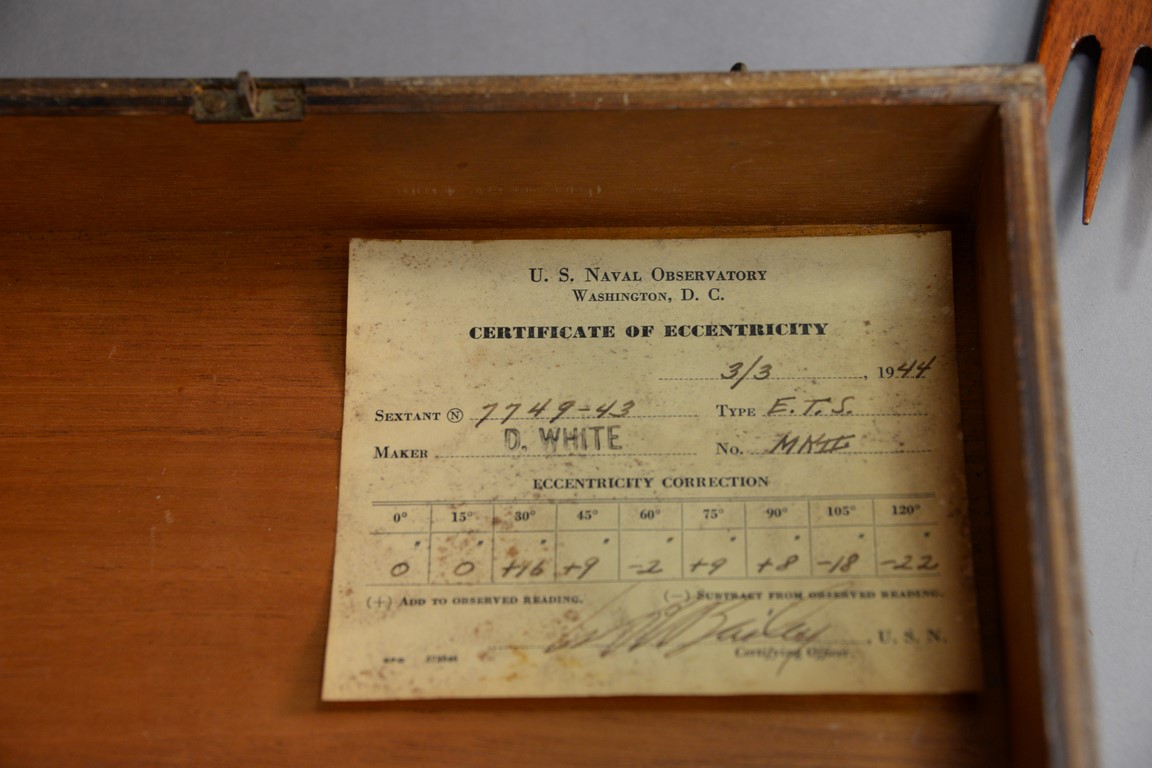 U. S. NAVAL OBSERVATORY
WASHINGTON, D. C.
CERTIFICATE OF ECCENTRICITY
3/3, 1944
SEXTANT Ⓝ 7749-43 TYPE E.T.S.
MAKER D. WHITE NO. MK II
ECCENTRICITY CORRECTION
0° 15° 30° 45° 60° 75° 90° 105° 120°
" " " " " " " " "
0 0 +16 +9 -2 +9 +8 -18 -22
(+) ADD TO OBSERVED READING. (—) SUBTRACT FROM OBSERVED READING.
Bailey, U. S. N.
Certifying Officer.